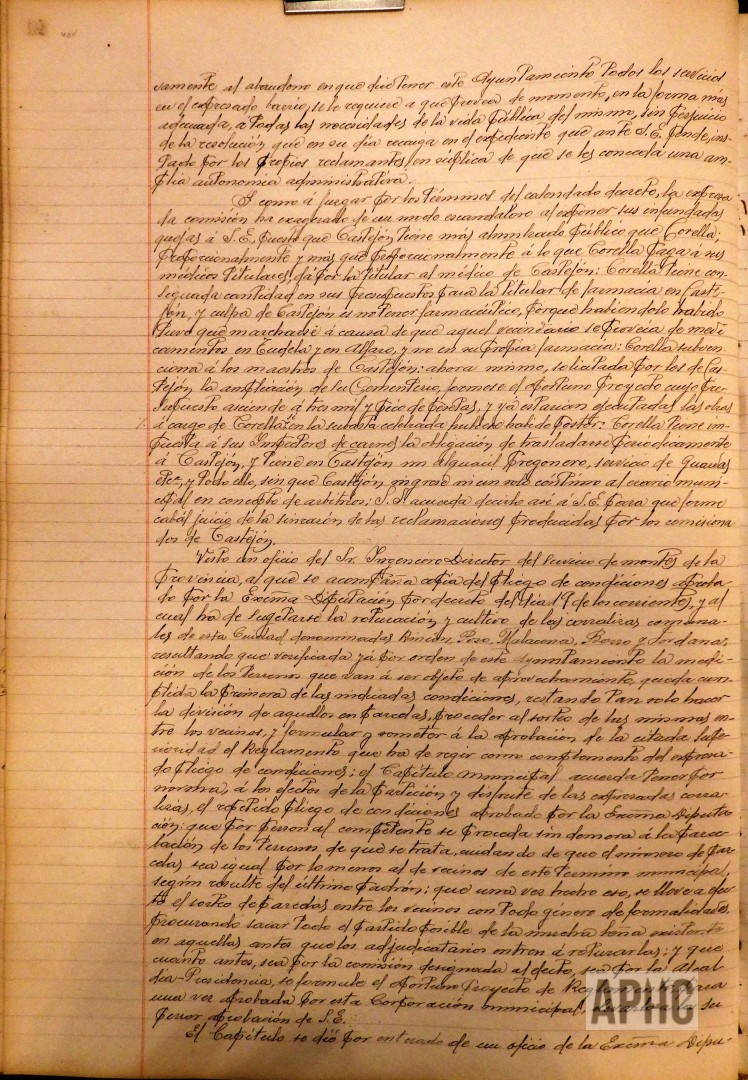 samente al abandono en que dice tener este Ayuntamiento todos los servicios
en el expresado barrio, se le requiere a que provea de momento, en la forma más
adecuada, a todas las necesidades de la vida pública del mismo, sin perjuicio
de la resolución que en su día recaiga en el expediente que ante S.E. pende, ins-
tado por los propios reclamantes, en súplica de que se les conceda una am-
plia autonomía administrativa.
Y como á juzgar por los términos del calendado decreto, la expresa-
da comisión ha exagerado de un modo escandaloso al exponer sus infundadas
quejas á S.E. puesto que Castejón tiene más alumbrado público que Corella;
proporcionalmente y más que proporcionalmente á lo que Corella paga á sus
médicos titulares, dá por la titular al médico de Castejón: Corella tiene con-
signada cantidad en sus presupuestos para la titular de farmacia en Caste-
jón, y culpa de Castejón es no tener farmacéutico, porque habiéndolo habido
tuvo que marcharse á causa de que aquel vecindario se proveía de medi-
camentos en Tudela y en Alfaro, y no en su propia farmacia: Corella subven-
ciona á los maestros de Castejón: ahora mismo, solicitada por los de Cas-
tejón la ampliación de su Cementerio, formose el oportuno proyecto cuyo pre-
supuesto asciende á tres mil y pico de pesetas, y yá estarían ejecutadas las obras
á cargo de Corella si en la subasta celebrada hubiese habido postor: Corella tiene im-
puesta á sus Inspectores de carnes la obligación de trasladarse periodicamente
á Castejón, y tiene en Castejón un alguacil pregonero, servicio de guardas
etc., y todo ello, sin que Castejón ingrese ni un solo céntimo al erario muni-
cipal en concepto de arbitrios; S.S. acuerda decirlo así á S.E. para que forme
cabál juicio de la sinrazón de las reclamaciones producidas por los comisiona-
dos de Castejón.
Visto un oficio del Sr. Ingeniero Director del servicio de montes de la
provincia, al que se acompaña copia del pliego de condiciones aproba-
do por la Excma Diputación por decreto del día 19 de los corrientes, y al
cual ha de sujetarse la roturación y cultivo de las corralizas comuna-
les de esta Ciudad denominadas Rincón, Pozo, Malacena, Borro y Jordana;
resultando que verificada yá por orden de este Ayuntamiento la medi-
ción de los terrenos que van á ser objeto de aprovechamiento, queda cum-
plida la primera de las indicadas condiciones, restando tan solo hacer
la división de aquellos en parcelas, proceder al sorteo de las mismas en-
tre los vecinos, y formular y someter á la aprobación de la citada supe-
rioridad el Reglamento que ha de regir como complemento del expresa-
do pliego de condiciones; el Capítulo municipal acuerda tener por
norma, á los efectos de la partición y disfrute de las expresadas corra-
lizas, el repetido pliego de condiciones aprobado por la Exma Diputa-
ción: que por personal competente se proceda sin demora á la parce-
lación de los terrenos de que se trata, cuidando de que el número de par-
celas sea igual por lo menos al de vecinos de este término municipal,
según resulte del último padrón; que una vez hecho eso, se lleve a efec-
to el sorteo de parcelas entre los vecinos con todo género de formalidades,
procurando sacar todo el partido posible de la mucha leña existente
en aquellas antes que los adjudicatarios entren á roturarlas; y que
cuanto antes, sea por la comisión designada al efecto, sea por la Alcal-
día-Presidencia, se formule el oportuno proyecto de Reglamento para
una vez aprobado por esta Corporación municipal, su-
perior aprobación de S.E.
El Capítulo se dió por enterado de un oficio de la Excma Dipu-
APHC